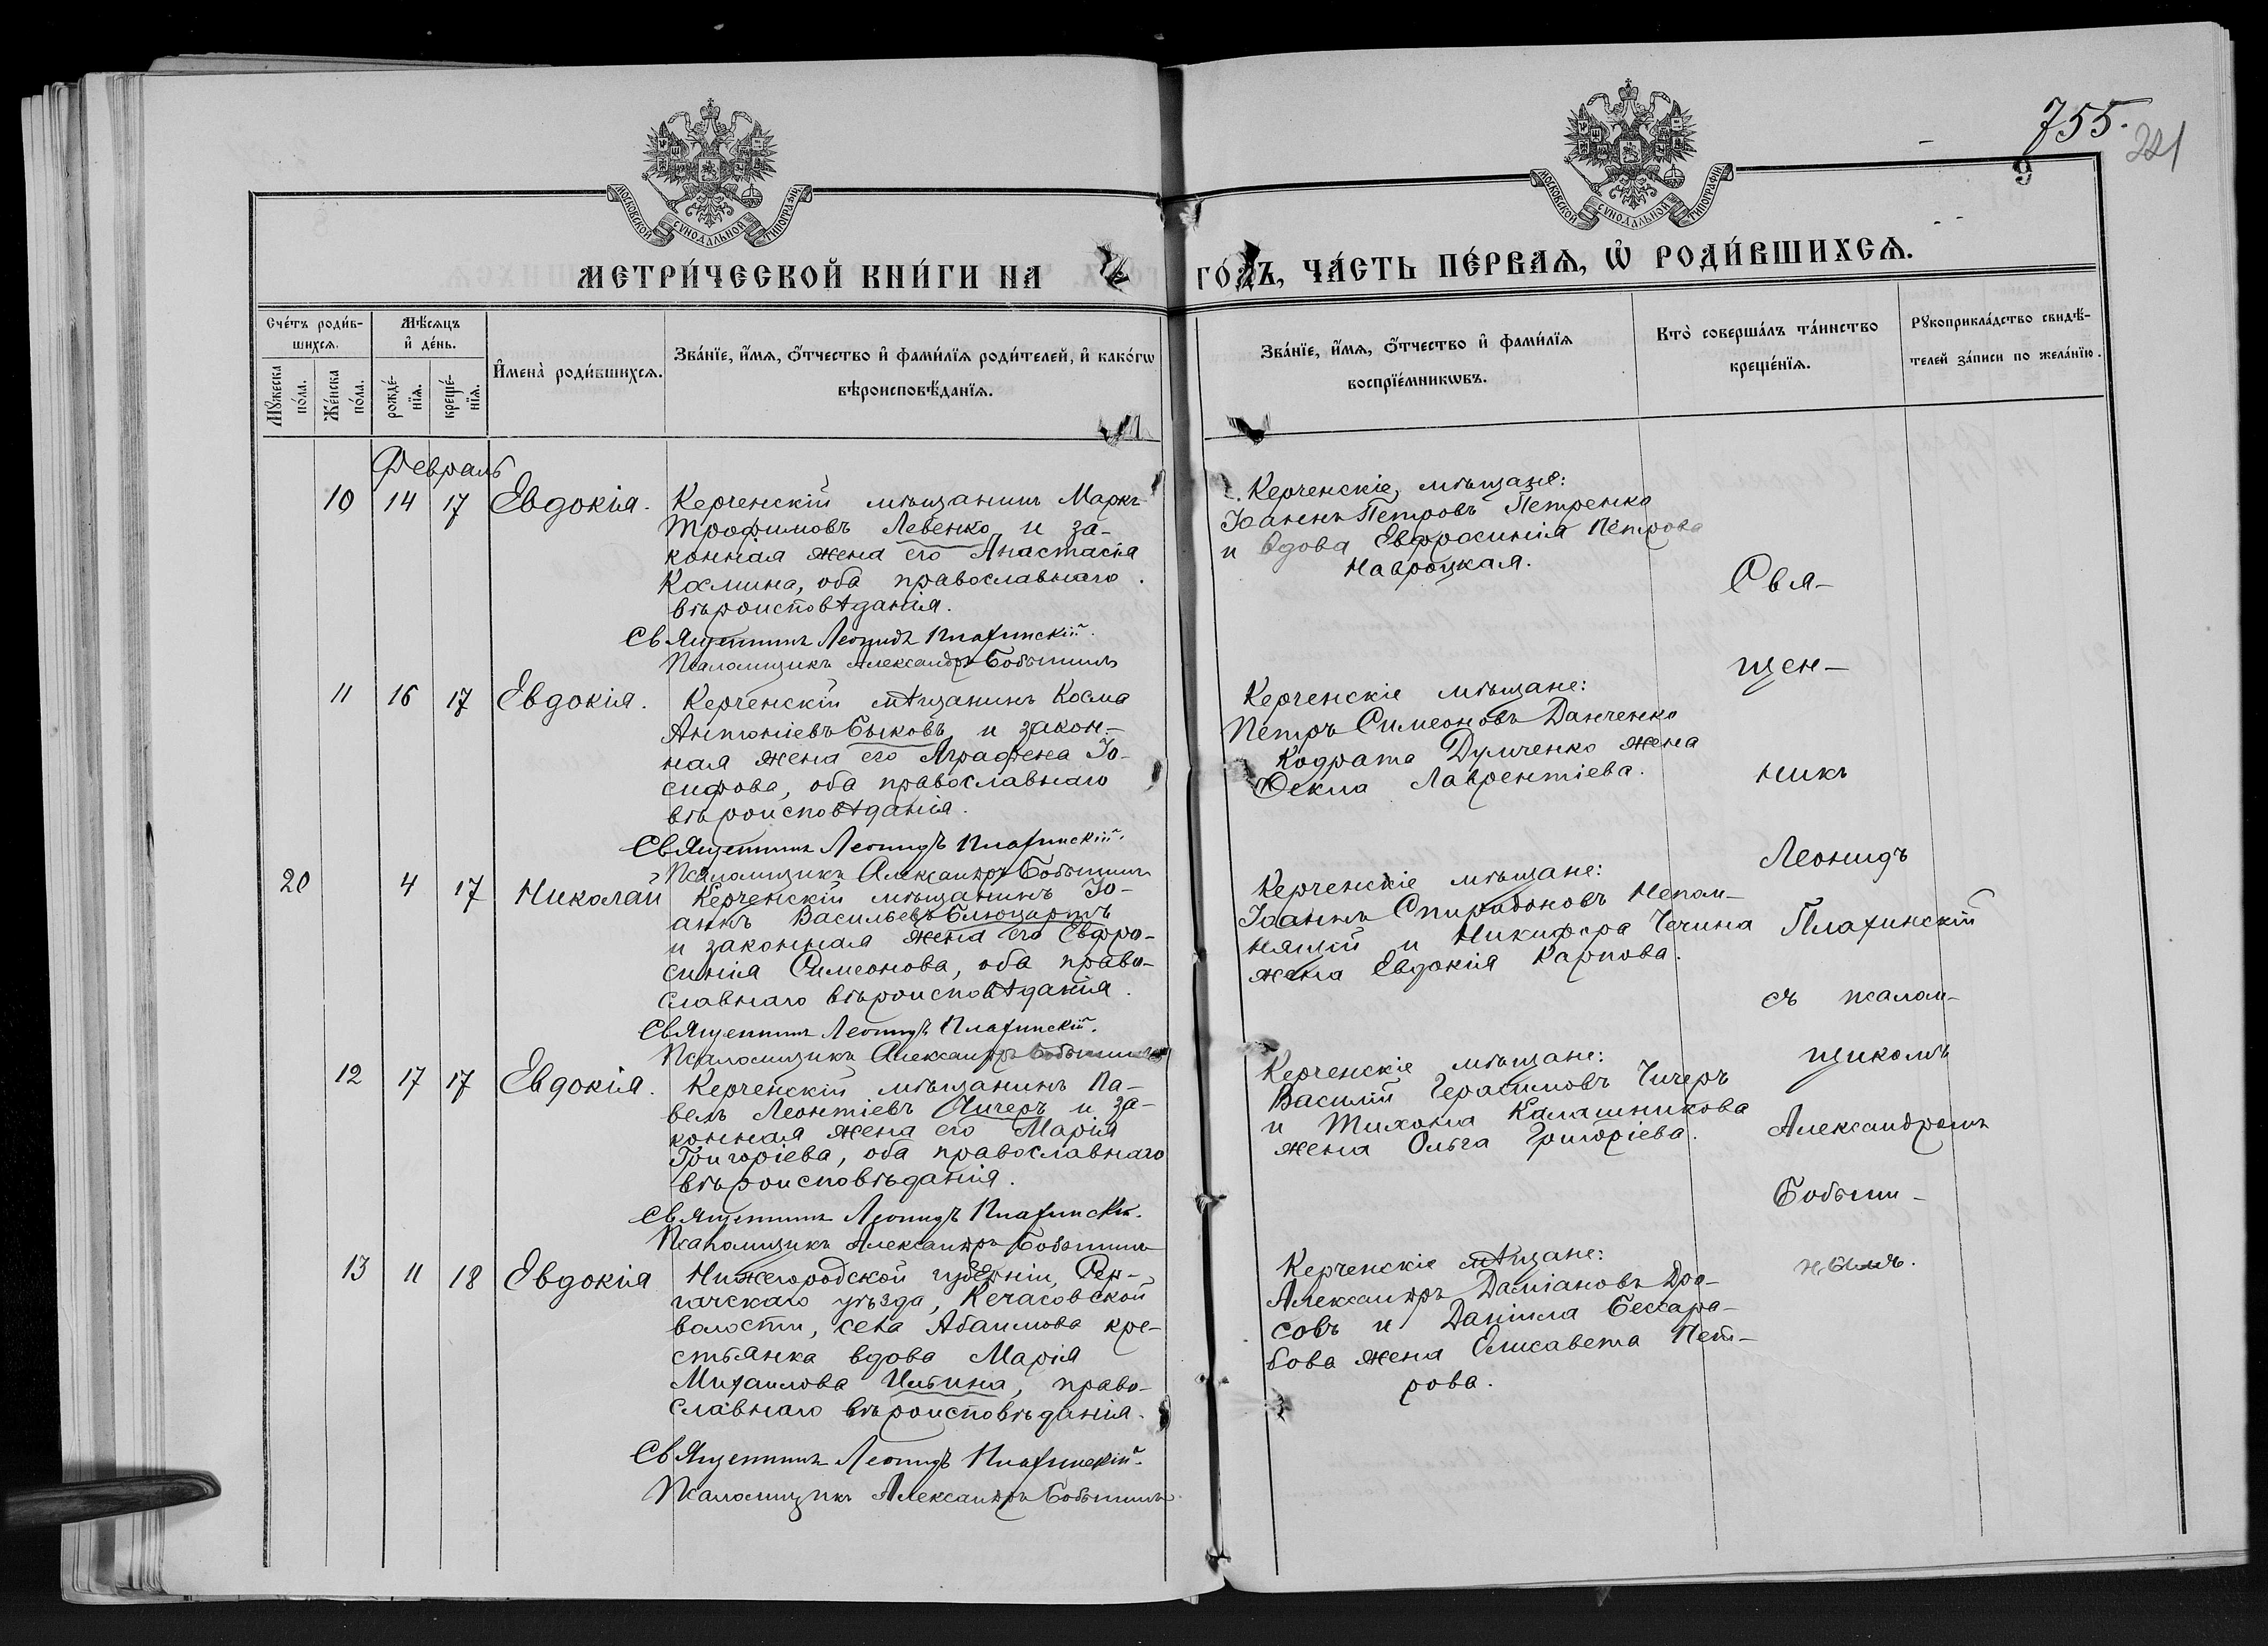 755.
221
9
МОСКОВСКОЙ СѴНОДАЛЬНОЙ ТИПОГРАФІИ
МОСКОВСКОЙ СѴНОДАЛЬНОЙ ТИПОГРАФІИ
МЕТРИ́ЧЕСКОЙ КНИ́ГИ НА ГО́ДЪ, ЧА́СТЬ ПЕ́РВАѦ, Ѡ҆ РОДИ́ВШИХСѦ.
Сче́тъ роди́в-
шихсѧ.
Мꙋ́жеска
по́ла.
Же́нска
по́ла.
Мѣ́сѧцъ
и҆ де́нь.
рожде́-
нїѧ.
креще́-
нїѧ.
И҆мена̀ роди́вшихсѧ.
Зва́нїе, и҆́мѧ, ѻ҆́тчество и҆ фами́лїѧ роди́телей, и҆ како́гѡ
вѣроисповѣ́данїѧ.
Зва́нїе, и҆́мѧ, ѻ҆́тчество и҆ фами́лїѧ
воспрїе́мникѡвъ.
Кто̀ соверша́лъ та́инство
креще́нїѧ.
Рꙋкоприкла́дство свидѣ́-
телей за́писи по жела́нїю.
Февраль
10 14 17 Евдокія.
Керченскій мѣщанинъ Маркъ
Трофимовъ Левенко и за-
конная жена его Анастасія
Космина, оба православнаго
вѣроисповѣданія.
Священникъ Леонидъ Плахинскій.
Псаломщикъ Александръ Бобынинъ
Керченскіе мѣщане:
Іоаннъ Петровъ Петренко
и вдова Евфросинія Петрова
Навроцкая.
11 16 17 Евдокія.
Керченскій мѣщанинъ Косма
Антоніевъ Быковъ и закон-
ная жена его Аграфена Іо-
сифова, оба православнаго
вѣроисповѣданія.
Священникъ Леонидъ Плахинскій.
Псаломщикъ Александръ Бобынинъ
Керченскіе мѣщане:
Петръ Симеоновъ Данченко
Кодрата Думченко жена
Фекла Лаврентіева.
20 4 17 Николай
Керченскій мѣщанинъ Іо-
аннъ Васильевъ
и законная жена его Евфро-
синія Симеонова, оба право-
славнаго вѣроисповѣданія.
Священникъ Леонидъ Плахинскій.
Псаломщикъ Александръ Бобынинъ
Керченскіе мѣщане:
Іоаннъ Спиридоновъ Непом-
нящій и Никифора Чечина
жена Евдокія Карпова.
12 17 17 Евдокія.
Керченскій мѣщанинъ Па-
велъ Леонтіевъ Чичеръ и за-
конная жена его Марія
Григоріева, оба православнаго
вѣроисповѣданія.
Священникъ Леонидъ Плахинскій.
Псаломщикъ Александръ Бобынинъ
Керченскіе мѣщане:
Василій Герасимовъ Чичеръ
и Тихона Калашникова
жена Ольга Григоріева.
13 11 18 Евдокія
Нижегородской губерніи, Сер-
гачскаго уѣзда, Кечасовской
волости, села Абаимова кре-
стьянка вдова Марія
Михаилова Ильина, право-
славнаго вѣроисповѣданія.
Священникъ Леонидъ Плахинскій.
Псаломщикъ Александръ Бобынинъ
Керченскіе мѣщане:
Александръ Даміановъ Дро-
совъ и Даніила Бессара-
бова жена Елисавета Пет-
рова.
Свя-
щен-
никъ
Леонидъ
Плахинскій
съ псалом-
щикомъ
Александромъ
Бобыни-
нымъ.